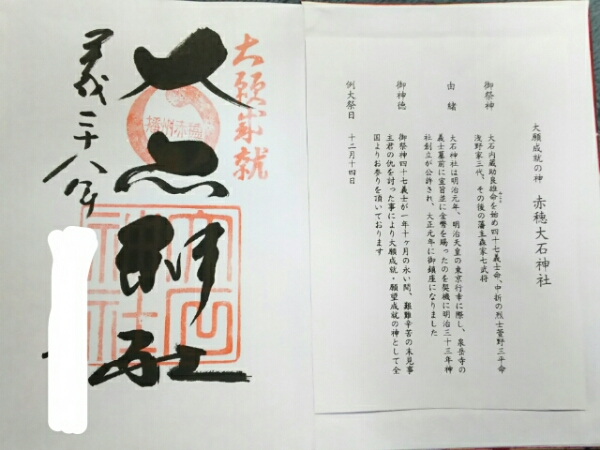 大願成就の神　赤穂大石神社
御祭神
大石内蔵助良雄命を始め四十七義士命、中折の烈士萱野三平命
浅野家三代、その後の藩主森家七武将
由緒
大石神社は明治元年、明治天皇の東京行幸に際し、泉岳寺の
義士墓前に宣旨並に金幣を賜ったのを契機に明治三十三年神
社創立が公許され、大正元年に御鎮座になりました
御神徳
御祭神四十七義士が一年十ヶ月の永い間、艱難辛苦の末見事
主君の仇を討った事により大願成就・願望成就の神として全
国よりお参りを頂いております
例大祭日　十二月十四日
大願成就
播州赤穂
大石神社
大石神社
平成二十八年